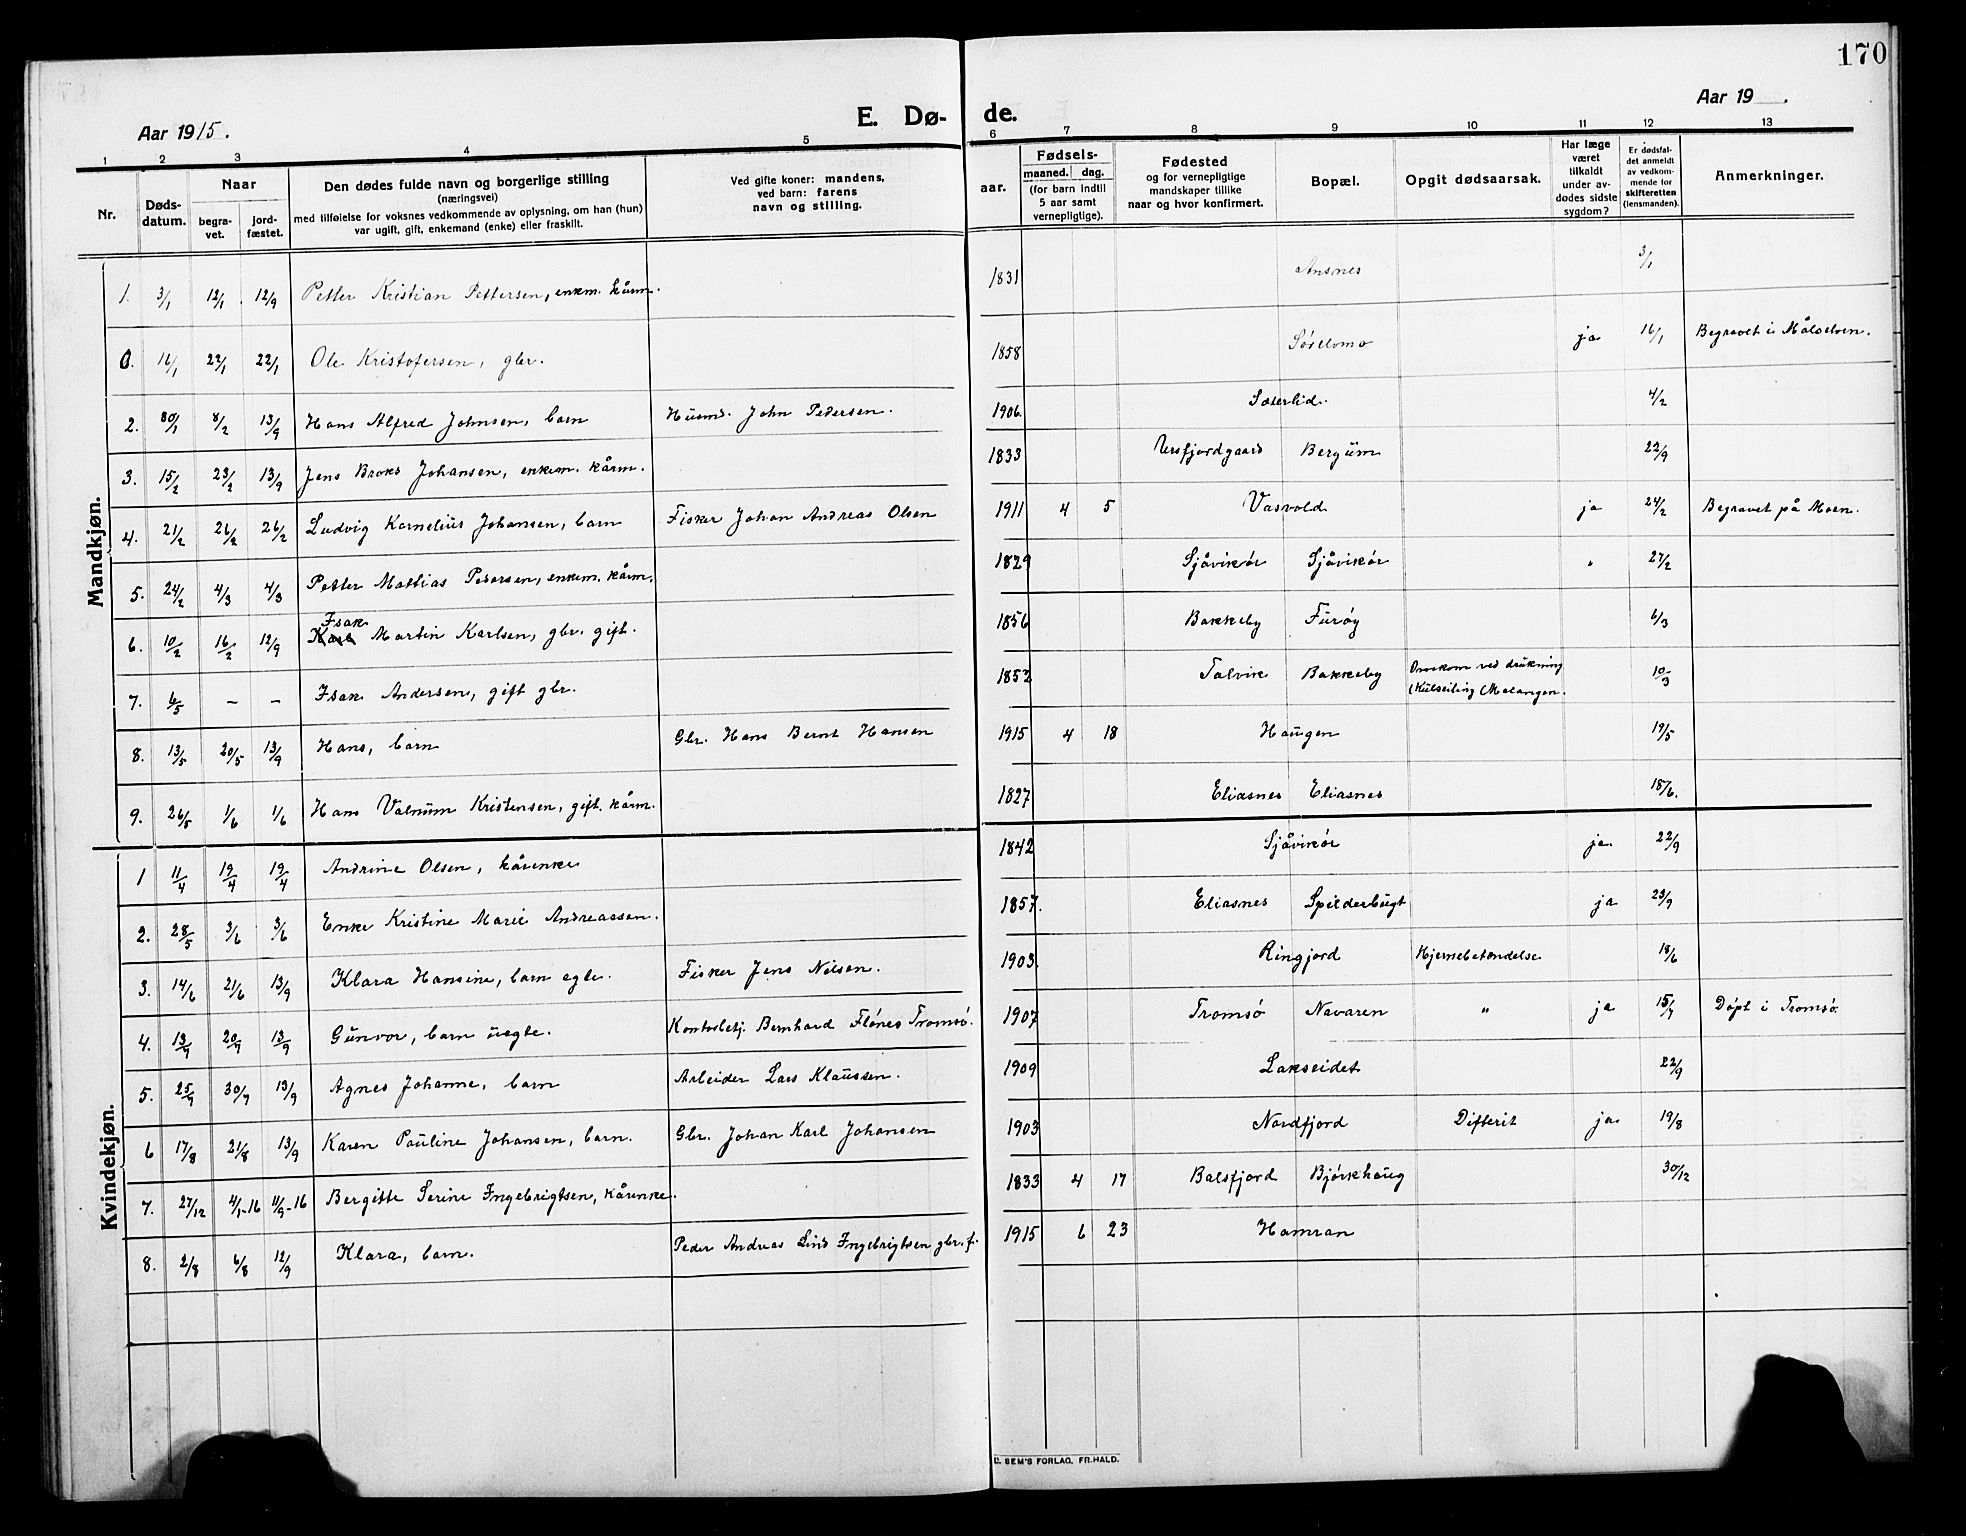 170
Aar 1915.
E. Dø-
de.
Aar 19 .
1 2 3 4 5 6 7 8 9 10 11 12 13
Nr.
Døds-
datum.
Naar
begra-
vet.
jord-
fæstet.
Den dødes fulde navn og borgerlige stilling
(næringsvei)
med tilføielse for voksnes vedkommende av oplysning, om han (hun)
var ugift, gift, enkemand (enke) eller fraskilt.
Ved gifte koner: mandens,
ved barn: farens
navn og stilling.
aar.
Fødsels-
maaned. dag.
(for barn indtil
5 aar samt
vernepligtige).
Fødested
og for vernepligtige
mandskaper tillike
naar og hvor konfirmert.
Bopæl.
Opgit dødsaarsak.
Har læge
været
tilkaldt
under av-
dødes sidste
sygdom?
Er dødsfal-
det anmeldt
av vedkom-
mende for
skifteretten
(lensmanden).
Anmerkninger.
Mandkjøn.
1. 3/1 12/1 12/9 Petter Kristian Pettersen, enkm. kårm. 1831 Ansnes 3/1
0. 16/1 22/1 22/1 Ole Kristofersen, gbr. 1858 Sørelvmo ja 16/1 Begravet i Målselven.
2. 30/1 8/2 13/9 Hans Alfred Johnsen, barn Husmd. John Pedersen. 1906 Sæterlid. 4/2
3. 15/2 23/2 13/9 Jens Broks Johansen, enkem. kårm. 1833 Ersfjordgaard Bergum 22/9
4. 21/2 26/2 26/2 Ludvig Kornelius Johansen, barn Fisker Johan Andreas Olsen 1911 4 5 Vasvold ja 24/2 Begravet på Moen.
5. 24/2 4/3 4/3 Petter Mathias Pedersen, enkem. kårm. 1829 Sjåvikør Sjåvikør " 27/2
Isak
6. 10/2 16/2 12/9 Karl Martin Karlsen, gbr. gift. 1856 Bakkeby Furøy 6/3
7. 6/5 – – Isak Andersen, gift gbr. 1852 Talvik Bakkeby Omkom ved drukning
(Kulseiling (Malangen. 10/3
8. 13/5 20/5 13/9 Hans, barn Gbr. Hans Bernt Hansen 1915 4 18 Haugen 19/5
9. 26/5 1/6 1/6 Hans Valnum Kristensen, gift. kårm. 1827 Eliasnes Eliasnes 18/6.
Kvindekjøn.
1 11/4 19/4 19/4 Andrine Olsen, kårenke 1842 Sjåvikør ja. 22/9
2. 28/5 3/6 3/6 Enke Kristine Marie Andreassen. 1857. Eliasnes Spilderbugt ja 23/9
3. 14/6 21/6 13/9 Klara Hansine, barn egte. Fisker Jens Nilsen. 1903. Ringjord Hjernebetændelse 18/6
4. 13/7 20/7 13/9 Gunvor, barn uegte. Kontorbetj. Bernhard Flønes Tromsø. 1907 Tromsø Navaren " ja 15/7 Døpt i Tromsø.
5. 25/7 30/7 13/9 Agnes Johanne, barn Arbeider Lars Klaussen. 1909 Lakseidet 22/9
6 17/8 21/8 13/9 Karen Pauline Johansen, barn. Gbr. Johan Karl Johansen 1903 Nordfjord Difterit ja 19/8
7. 27/12 4/1-16 11/9-16 Bergitte Serine Ingebrigtsen, Kårenke. 1833 4 17 Balsfjord Bjørkhaug 30/12
8. 2/8 6/8 12/9 Klara, barn. Peder Andreas Lind Ingebrigtsen gbr. f. 1915 6 23 Hamran
SEM'S FORLAG, FR.HALD.